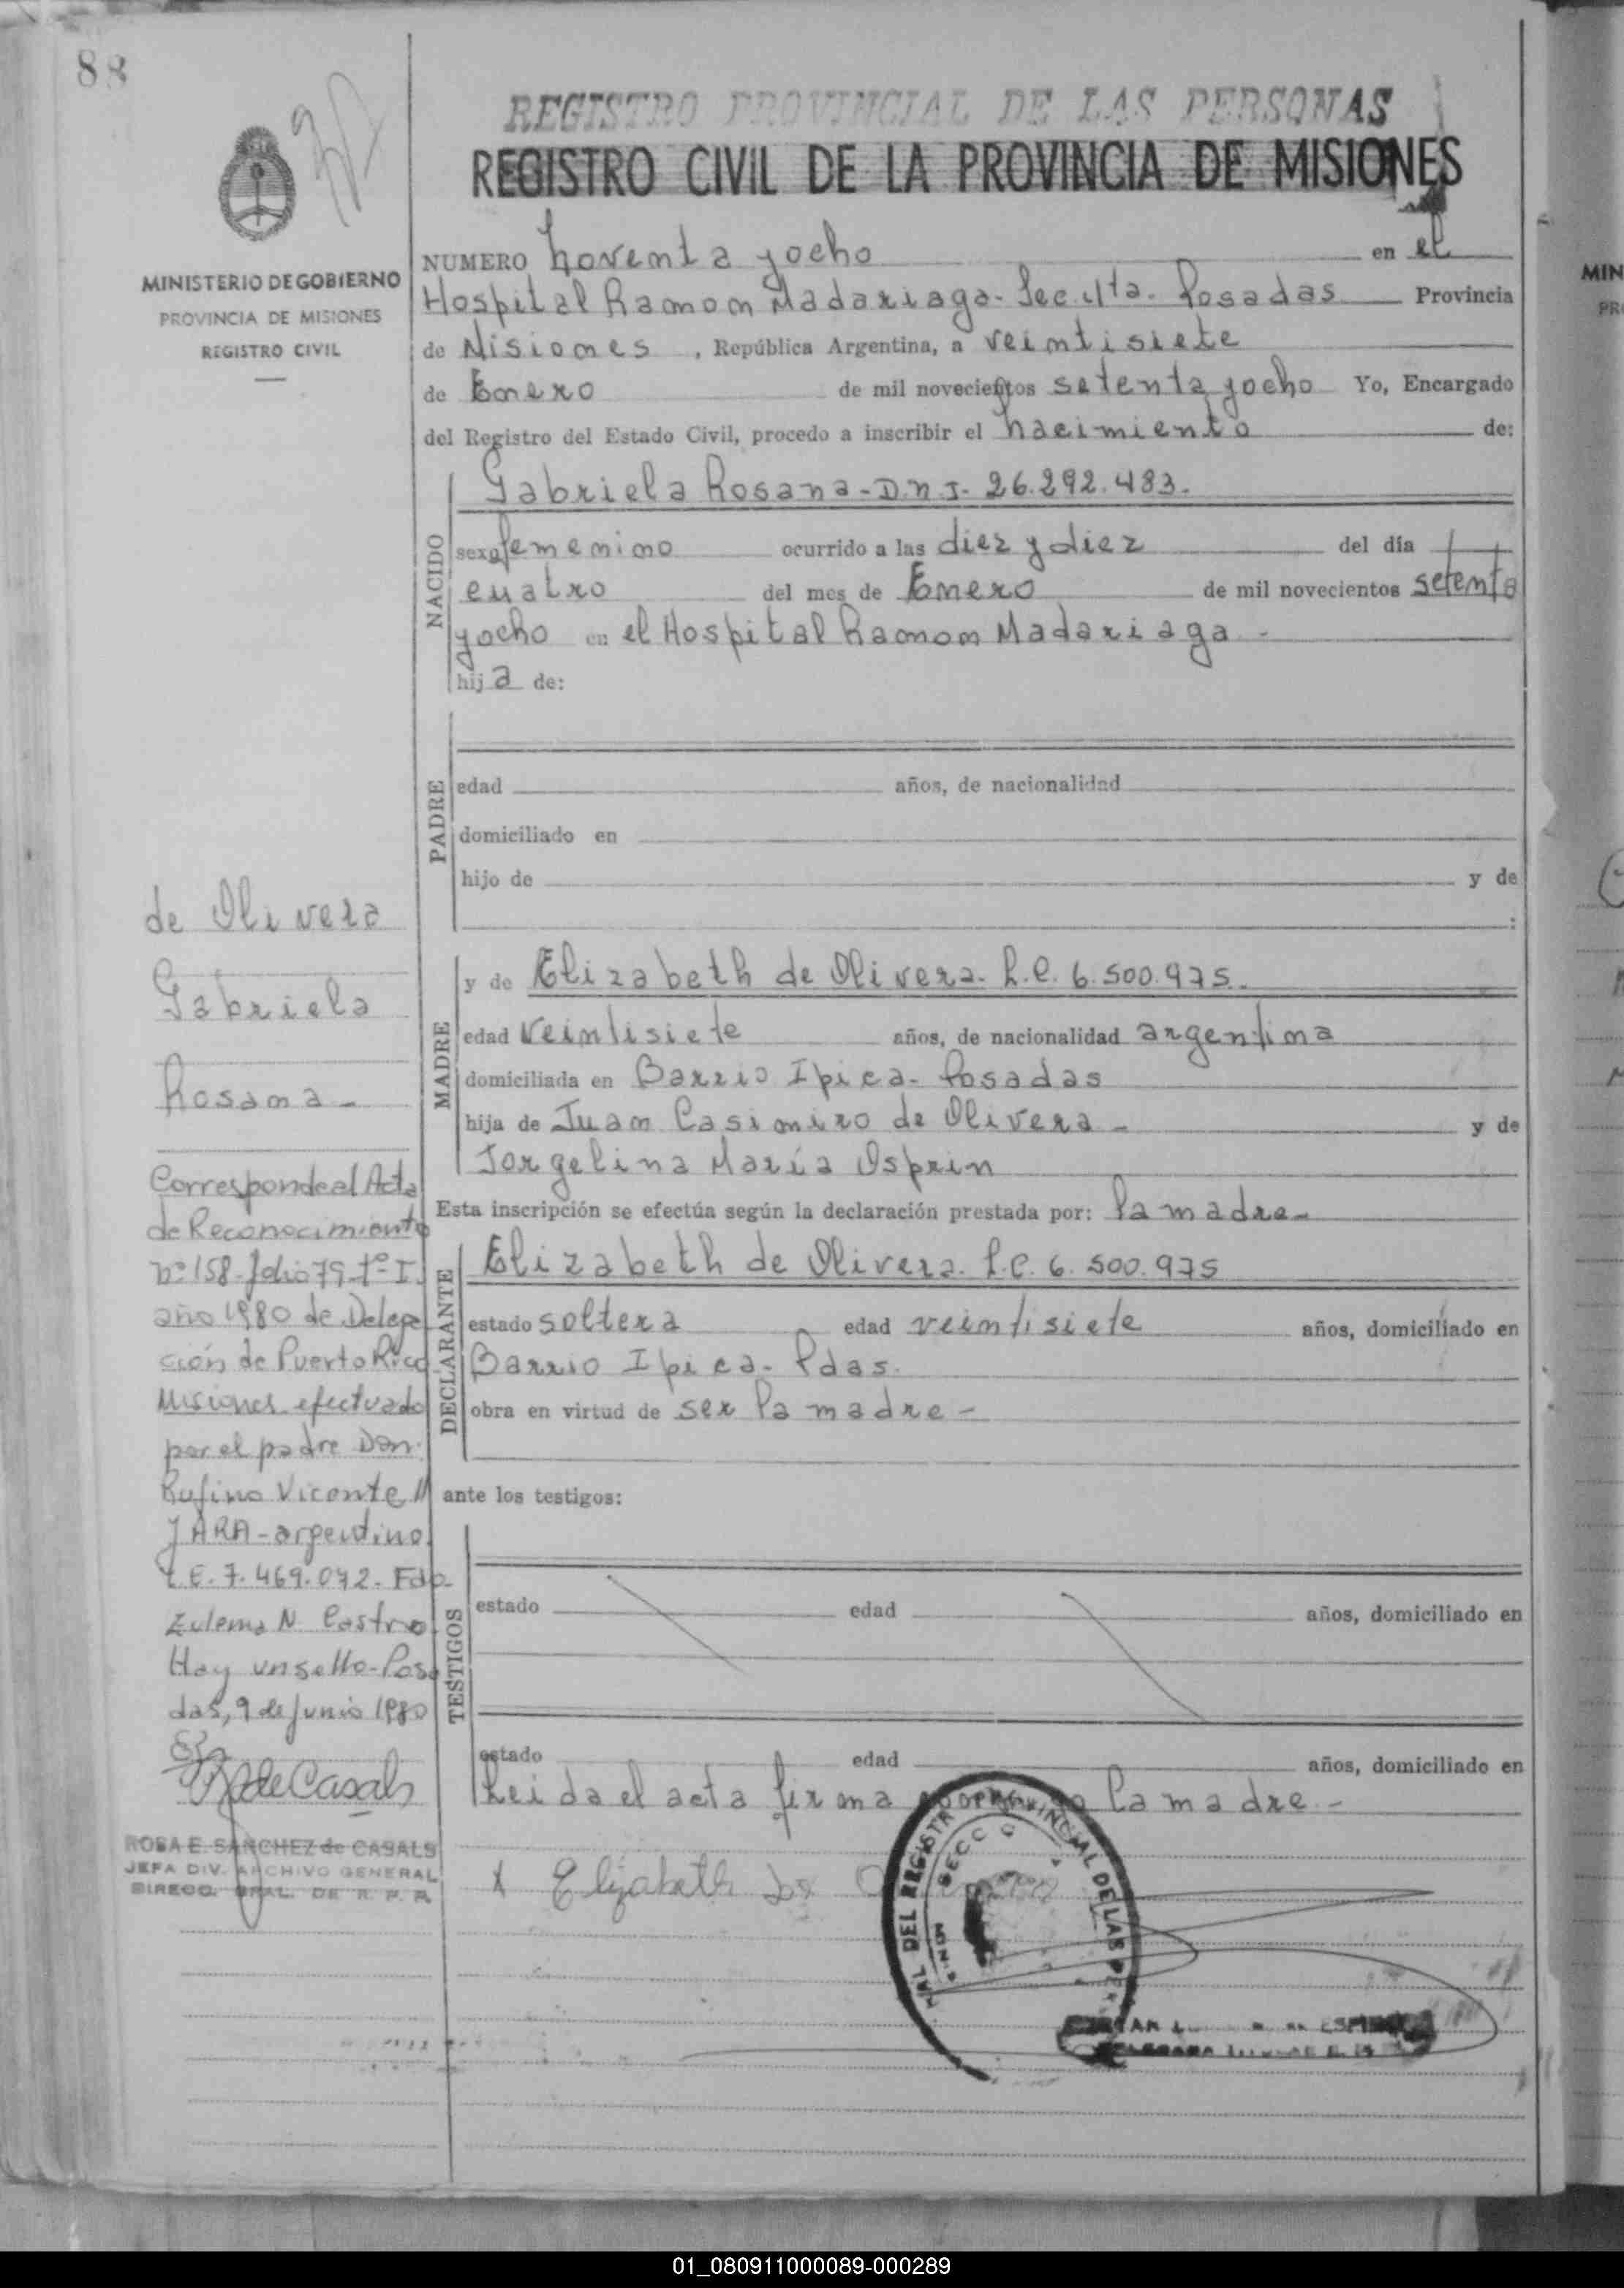 88
REGISTRO PROVINCIAL DE LAS PERSONAS
REGISTRO CIVIL DE LA PROVINCIA DE MISIONES
MINISTERIO DE GOBIERNO
PROVINCIA DE MISIONES
REGISTRO CIVIL
NUMERO noventa y ocho en el
Hospital Ramon Madariaga- Sec. 4ta. Posadas Provincia
de Misiones , República Argentina, a veintisiete
de Enero de mil novecientos setenta y ocho Yo, Encargado
del Registro del Estado Civil, procedo a inscribir el nacimiento de:
NACIDO
Gabriela Rosana - D.N.I- 26.292.483.
sexo femenino ocurrido a las diez y diez del día
cuatro del mes de Enero de mil novecientos setenta
y ocho en el Hospital Ramon Madariaga -
hija de:
PADRE
edad años, de nacionalidad
domiciliado en
hijo de y de
:
MADRE
y de Elizabeth de Olivera- L.C. 6.500.975.
edad veintisiete años, de nacionalidad argentina
domiciliada en Barrio Ipica- Posadas
hija de Juan Casimiro de Olivera - y de
Jorgelina María Osprin
Esta inscripción se efectúa según la declaración prestada por: la madre-
DECLARANTE
Elizabeth de Olivera- L.C. 6.500.975
estado soltera edad veintisiete años, domiciliado en
Barrio Ipica- Pdas.
obra en virtud de ser la madre -
ante los testigos:
TESTIGOS
estado edad años, domiciliado en
estado edad años, domiciliado en
Leida el acta firma la madre -
x Elizabeth De
de Olivera
Gabriela
Rosana -
Corresponde al Acta
de Reconocimiento
Nº 158- folio 79- Tº I.
año 1980 de Delega
ción de Puerto Rico
Misiones efectuado
por el padre Don
Rufino Vicente //
JARA - argentino
L.E. 7.469.072- Fdo-
Zulema N. Castro
Hay un sello- Posa
das, 9 de Junio 1980
R de Casals
ROSA E. SANCHEZ de CASALS
JEFA DIV. ARCHIVO GENERAL
DIRECC. GRAL. DE R. P. P.
RAL DEL REGISTRO PROVINCIAL DE LAS PER
SECC
MISIN
MIN
PR
01_080911000089-000289